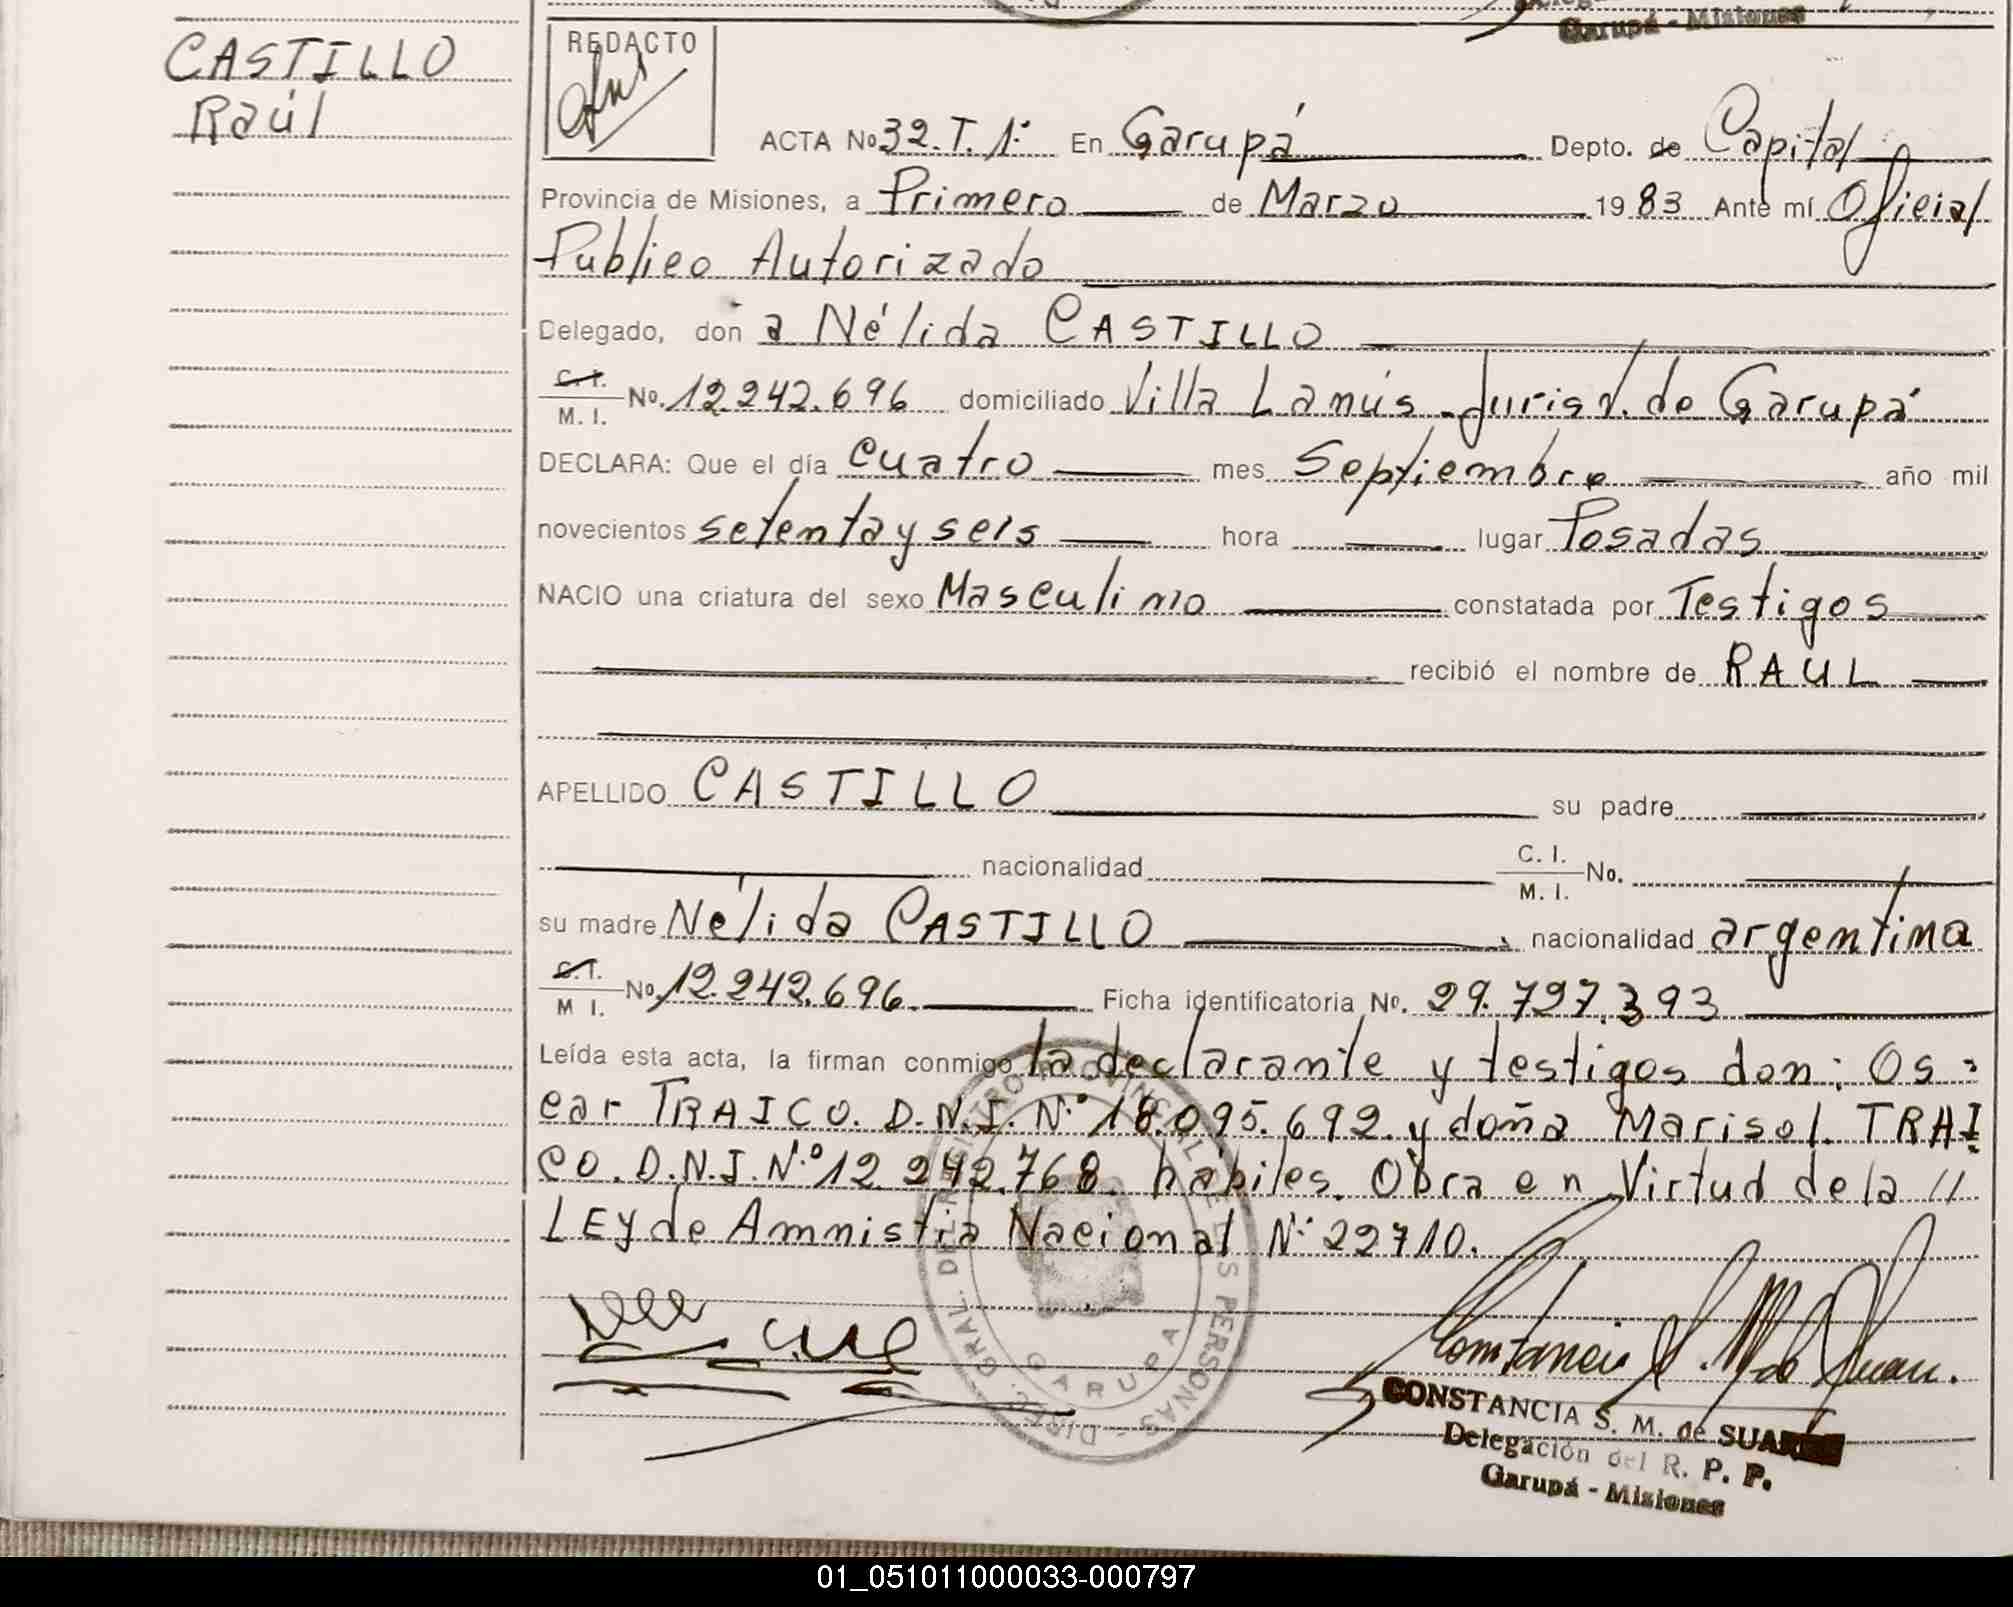 Garupá - Misiones
CASTILLO
Raúl
REDACTO
ACTA No 32. T. 1º En Garupá Depto. de Capital
Provincia de Misiones, a Primero de Marzo 1983 Ante mí Oficial
Publico Autorizado
Delegado, don a Nélida CASTILLO
C. I. / M. I. No. 12.242.696 domiciliado Villa Lanús - Jurisd. de Garupá
DECLARA: Que el día cuatro mes Septiembre año mil
novecientos setenta y seis hora lugar Posadas
NACIO una criatura del sexo Masculino constatada por Testigos
recibió el nombre de RAUL
APELLIDO CASTILLO su padre
nacionalidad C. I. / M. I. No.
su madre Nélida CASTILLO nacionalidad argentina
C. I. / M I. No. 12.242.696. Ficha identificatoria No. 29.727.393
Leída esta acta, la firman conmigo la declarante y testigos don: Os=
car TRAICO. D.N.I. Nº 18.095.692. y doña Marisol. TRAI
CO. D.N.I. Nº 12.242.768. habiles. Obra en Virtud de la //
LEY de Amnistia Nacional Nº 22710.
DIREC. GRAL. DEL REGISTRO PROVINCIAL DE LAS PERSONAS -
GARUPA
CONSTANCIA S. M. de SUAREZ
Delegación del R. P. P.
Garupá - Misiones
01_051011000033-000797